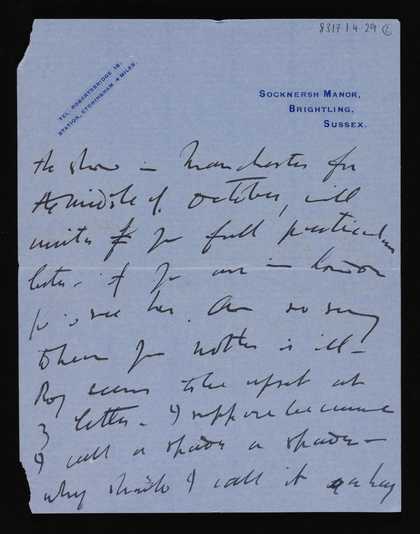 8317/4.29 ②
TEL. ROBERTSBRIDGE 18.
STATION, ETCHINGHAM 4 MILES.
SOCKNERSH MANOR,
BRIGHTLING,
SUSSEX.
the show in Manchester for
the middle of October, will
write for full particulars
later. if you are in London
so sorry
to hear your mother is ill -
Roy seems to be upset at
letter - I suppose because
I call a spade a spade -
why should I call it a hay